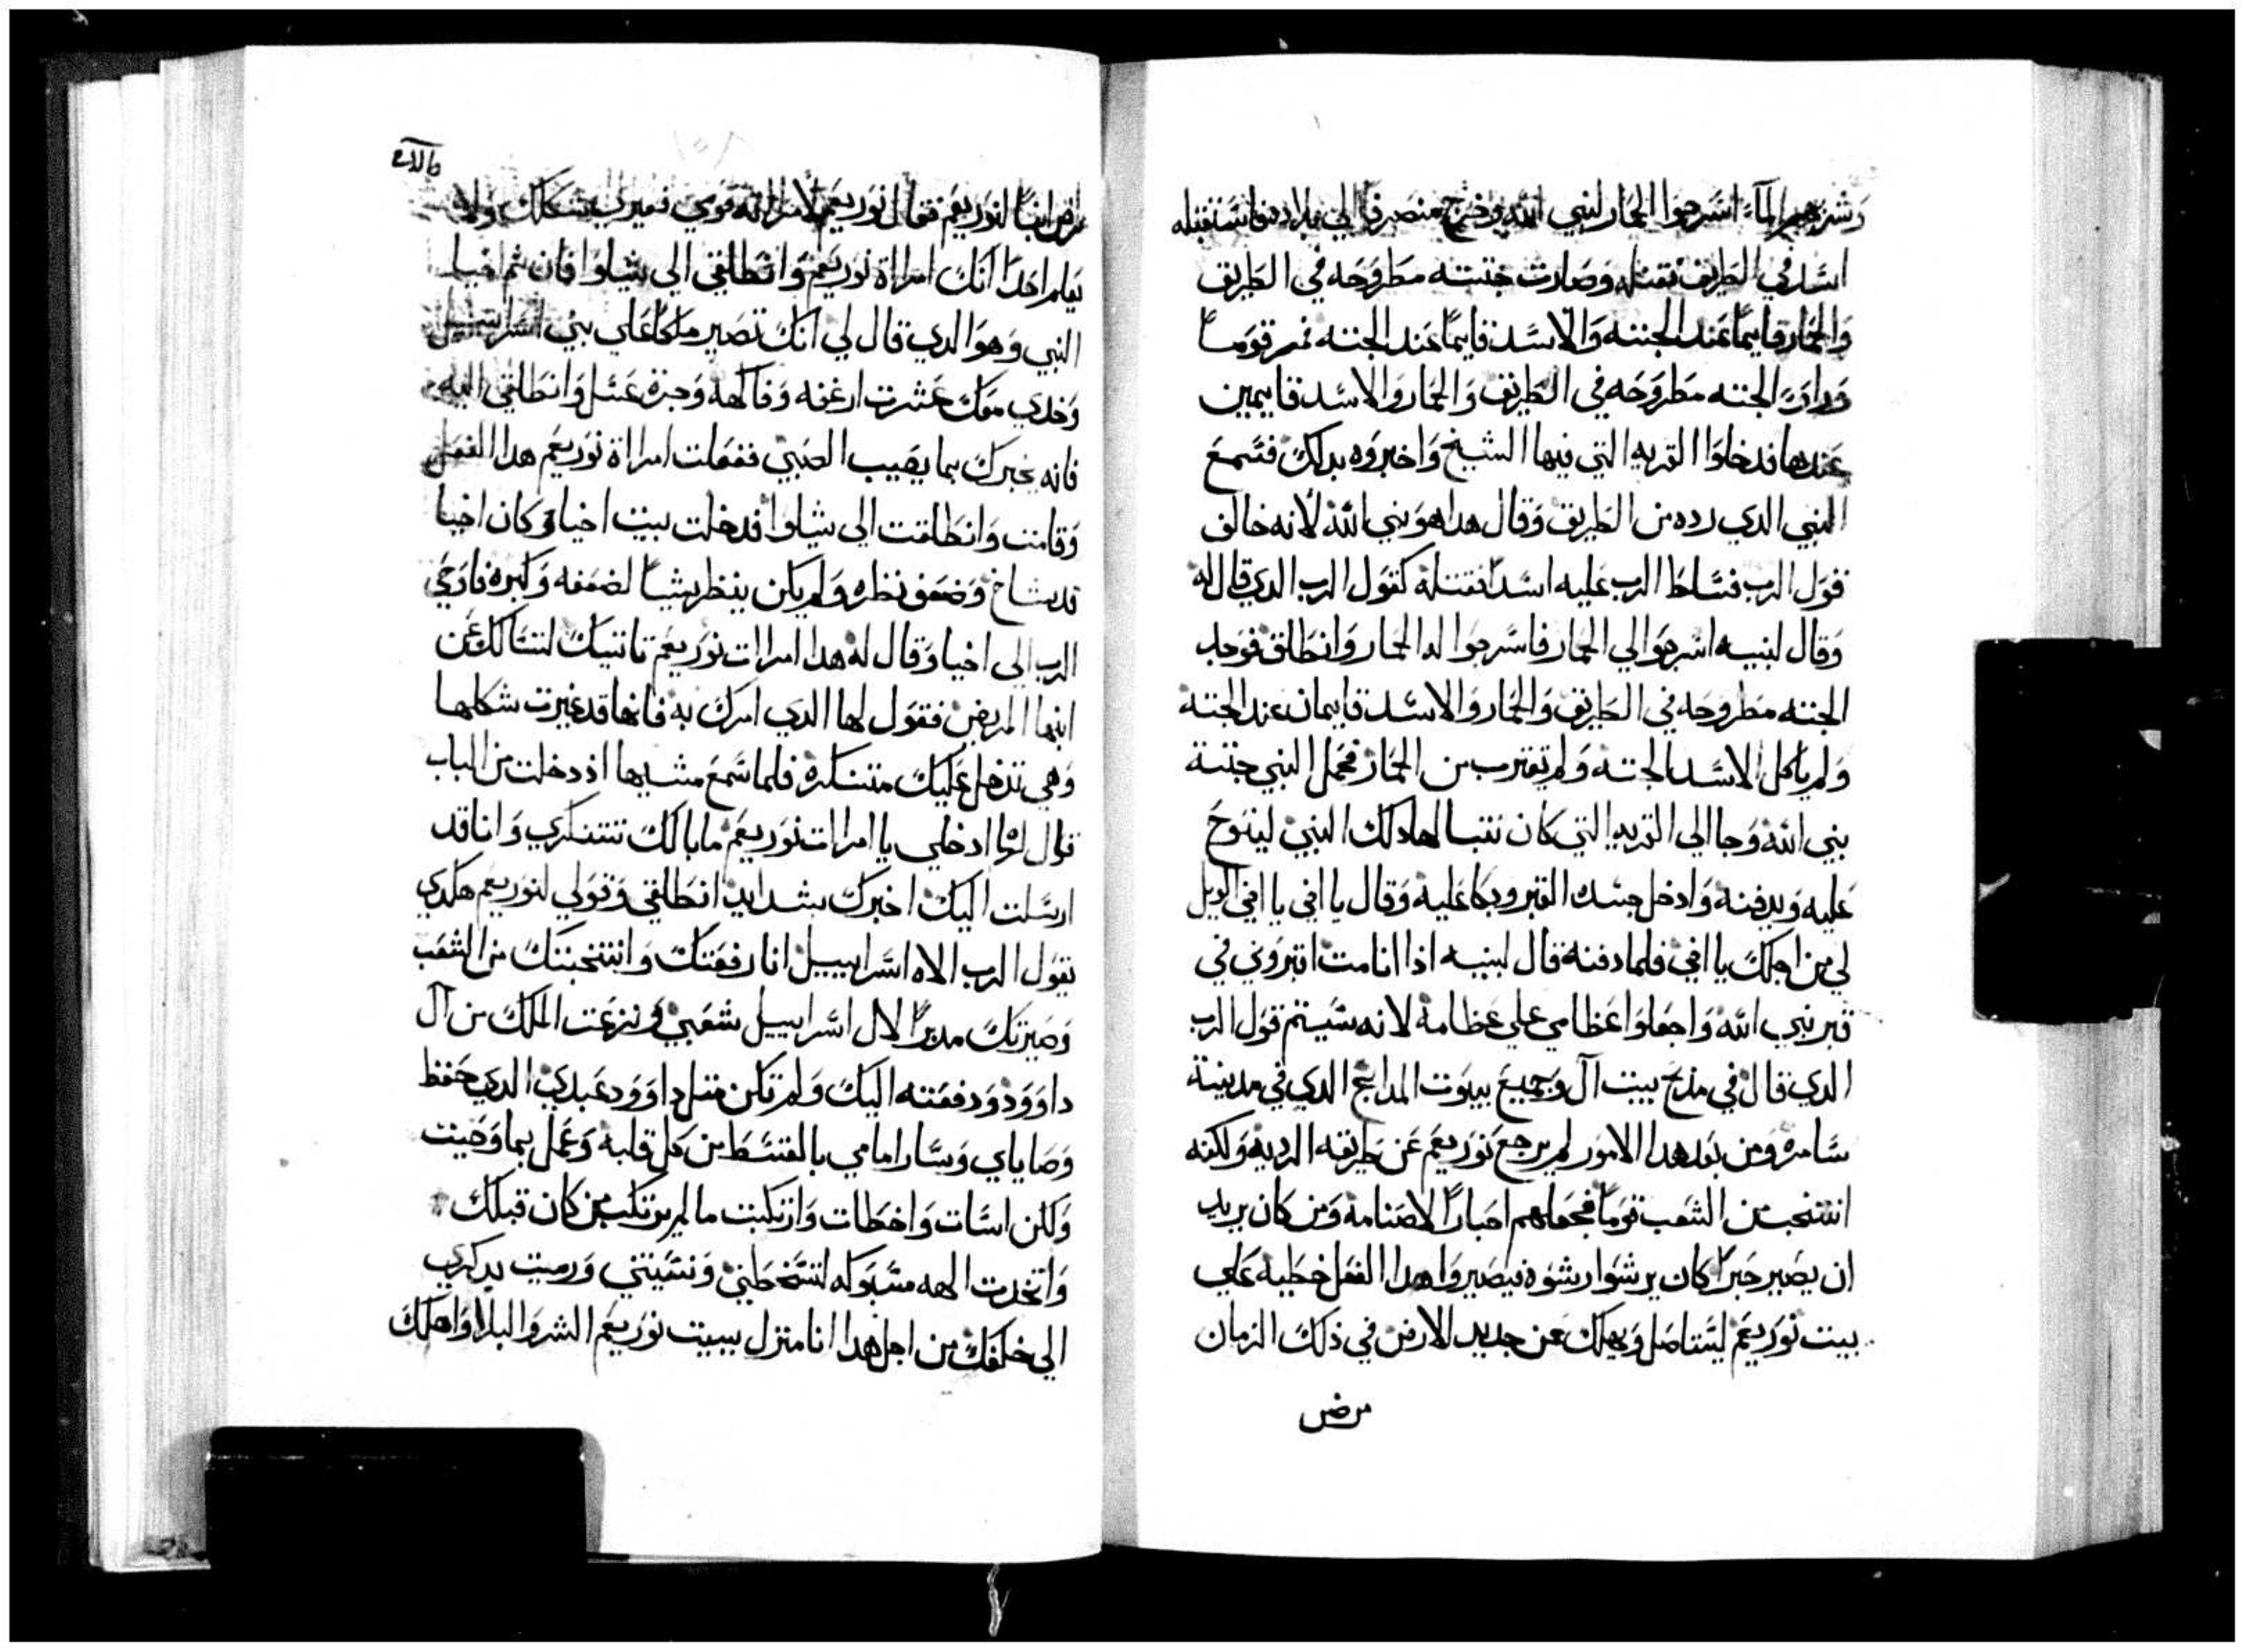 وشربهم الماء اسرجوا الحمار لنبي الله وخرج منصرفا الي بلاده فاستقبله
اسد في الطريق فقتله وصارت جتته مطروحه في الطريق
والحمار قايما عند الجتته والاسد قايما عند الجتته فمر قوما
وراوا الجتته مطروحه في الطريق والحمار والاسد قايمين
عندها فدخلوا القريه التي فيها الشيخ واخبروه بدلك فسمع
النبي الدي رده من الطريق وقال هدا هو نبي الله لانه خالف
قول الرب فسلط الرب عليه اسدا فقتله كقول الرب الدي قال له
وقال لبنيه اسرجوا لي الحمار فاسرجوا له الحمار وانطلق فوجد
الجتته مطروحه في الطريق والحمار والاسد قايمان عند الجتته
ولم ياكل الاسد الجتته ولم تقترب من الحمار فحمل النبي جتتة
نبي الله وجا الي القريه التي كان نتبا لها دلك النبي لينوح
عليه ويدفنه وادخل جسد القبر وبكا عليه وقال يا اخي يا اخي الويل
لي من اجلك يا اخي فلما دفنه قال لبنيه اذا انا مت اقبروني في
قبر نبي الله واجعلوا عظامي علي عظامه لانه سيتم قول الرب
الدي قال في مدبح بيت آل وجميع بيوت المدابح الدي في مدينة
سامره ومن بعد هدا الامور لم يرجع نوربعم عن طريقه الرديه ولكنه
انتخب من الشعب قوما فجعلهم احبارا لاصنامه ومن كان يريد
ان يصير حبرا كان يرشوا رشوه فيصير واهدا الفعل خطيه علي
بيت نوربعم ليتاصل ويهلك عن جديد الارض في ذلك الزمان
مرض
مرض ابنا لنوربعم فقال نوربعم لامراته قومي فغيري شكلك ولا
يعلم احدا انك امراة نوربعم وانطلقي الي شيلوا فان ثم اخيا
النبي وهو الدي قال لي انك تصير ملكا علي بني اسراييل
وخدي معك عشرت ارغفه وفاكهه وجرة عسل وانطلقي اليه
فانه يخبرك بما يصيب الصبي ففعلت امراة نوربعم هدا الفعل
وقامت وانطلقت الي شيلوا فدخلت بيت اخيا وكان اخيا
قد شاخ وضعف نظره ولم يكن ينظر شيا لضعفه وكبره فاوحي
الرب الي اخيا وقال له هدا امرات نوربعم تاتيك لتسالك عن
ابنها المريض فقول لها الدي امرك به فانها قد غيرت شكلها
وهي تدخل عليك متنكره فلما سمع مشيها اذ دخلت من الباب
قال لها ادخلي يا امرات نوربعم ما بالك تتنكري وانا قد
ارسلت اليك اخبرك بشدايد انطلقي وقولي لنوربعم هكدي
يقول الرب الاه اسراييل انا رفعتك وانتخبتك من الشعب
وصيرتك مدبرا لال اسراييل شعبي ونزعت الملك من آل
داوود ودفعته اليك ولم تكن متل داوود عبدي الدي حفظ
وصاياي وسار امامي بالقسط من كل قلبه وعمل بما وصيت
ولكن اسات واخطات وارتكبت ما لم يرتكب من كان قبلك
واتخدت الهه مسبوكه لتسخطني ونسيتني ورميت بدكري
الي خلفك من اجل هدا انا منزل ببيت نوربعم الشر والبلا واهلك